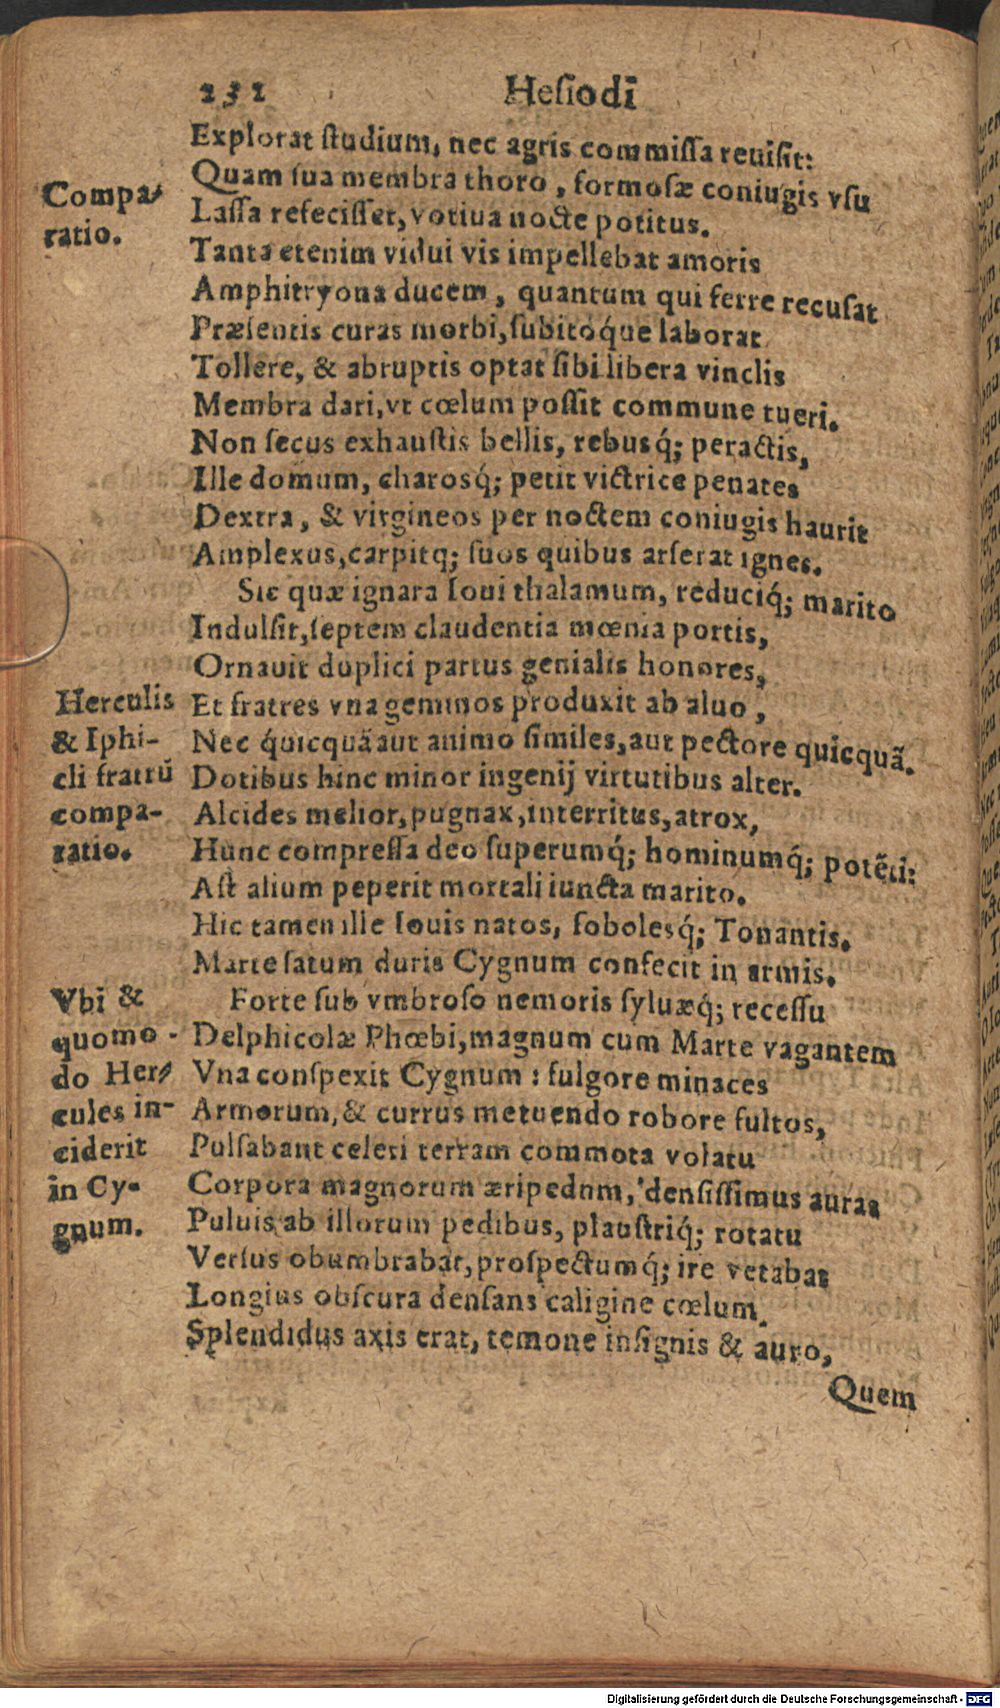 232 Hesiodi
Explorat studium, nec agris commissa reuisit:
Quam sua membra thoro, formosæ coniugis vsu
Lassa refecisset, votiua nocte potitus.
Compa-
ratio.
Tanta etenim vidui vis impellebat amoris
Amphitryona ducem, quantum qui ferre recusat
Præsentis curas morbi, subitoq́ue laborat
Tollere, & abruptis optat sibi libera vinclis
Membra dari, vt cœlum possit commune tueri.
Non secus exhaustis bellis, rebusq́; peractis,
Ille domum, charosq́; petit victrice penates
Dextra, & virgineos per noctem coniugis haurit
Amplexus, carpitq; suos quibus arserat ignes.
Sic quæ ignara Ioui thalamum, reduciq́; marito
Indulsit, septem claudentia mœnia portis,
Ornauit duplici partus genialis honores,
Et fratres vna geminos produxit ab aluo,
Nec q́uicquã aut animo similes, aut pectore quicquã.
Dotibus hinc minor ingenij virtutibus alter.
Alcides melior, pugnax, interritus, atrox,
Hunc compressa deo superumq́; hominumq́; potẽti:
Herculis
& Iphi-
cli fratrũ
compa-
ratio.
Ast alium peperit mortali iuncta marito.
Hic tamen ille Iouis natos, sobolesq́; Tonantis.
Marte satum duris Cygnum confecit in armis.
Forte sub vmbroso nemoris syluæq́; recessu
Delphicolæ Phœbi, magnum cum Marte vagantem
Vna conspexit Cygnum: fulgore minaces
Armorum, & currus metuendo robore fultos,
Pulsabant celeri terram commota volatu
Corpora magnorum æripedum, densissimus auras
Puluis ab illorum pedibus, plaustriq́; rotatu
Vbi &
quomo-
do Her-
cules in-
ciderit
in Cy-
gnum.
Versus obumbrabat, prospectumq́; ire vetabat
Longius obscura densans caligine cœlum.
Splendidus axis erat, temone insignis & auro,
Quem
Digitalisierung gefördert durch die Deutsche Forschungsgemeinschaft - DFG